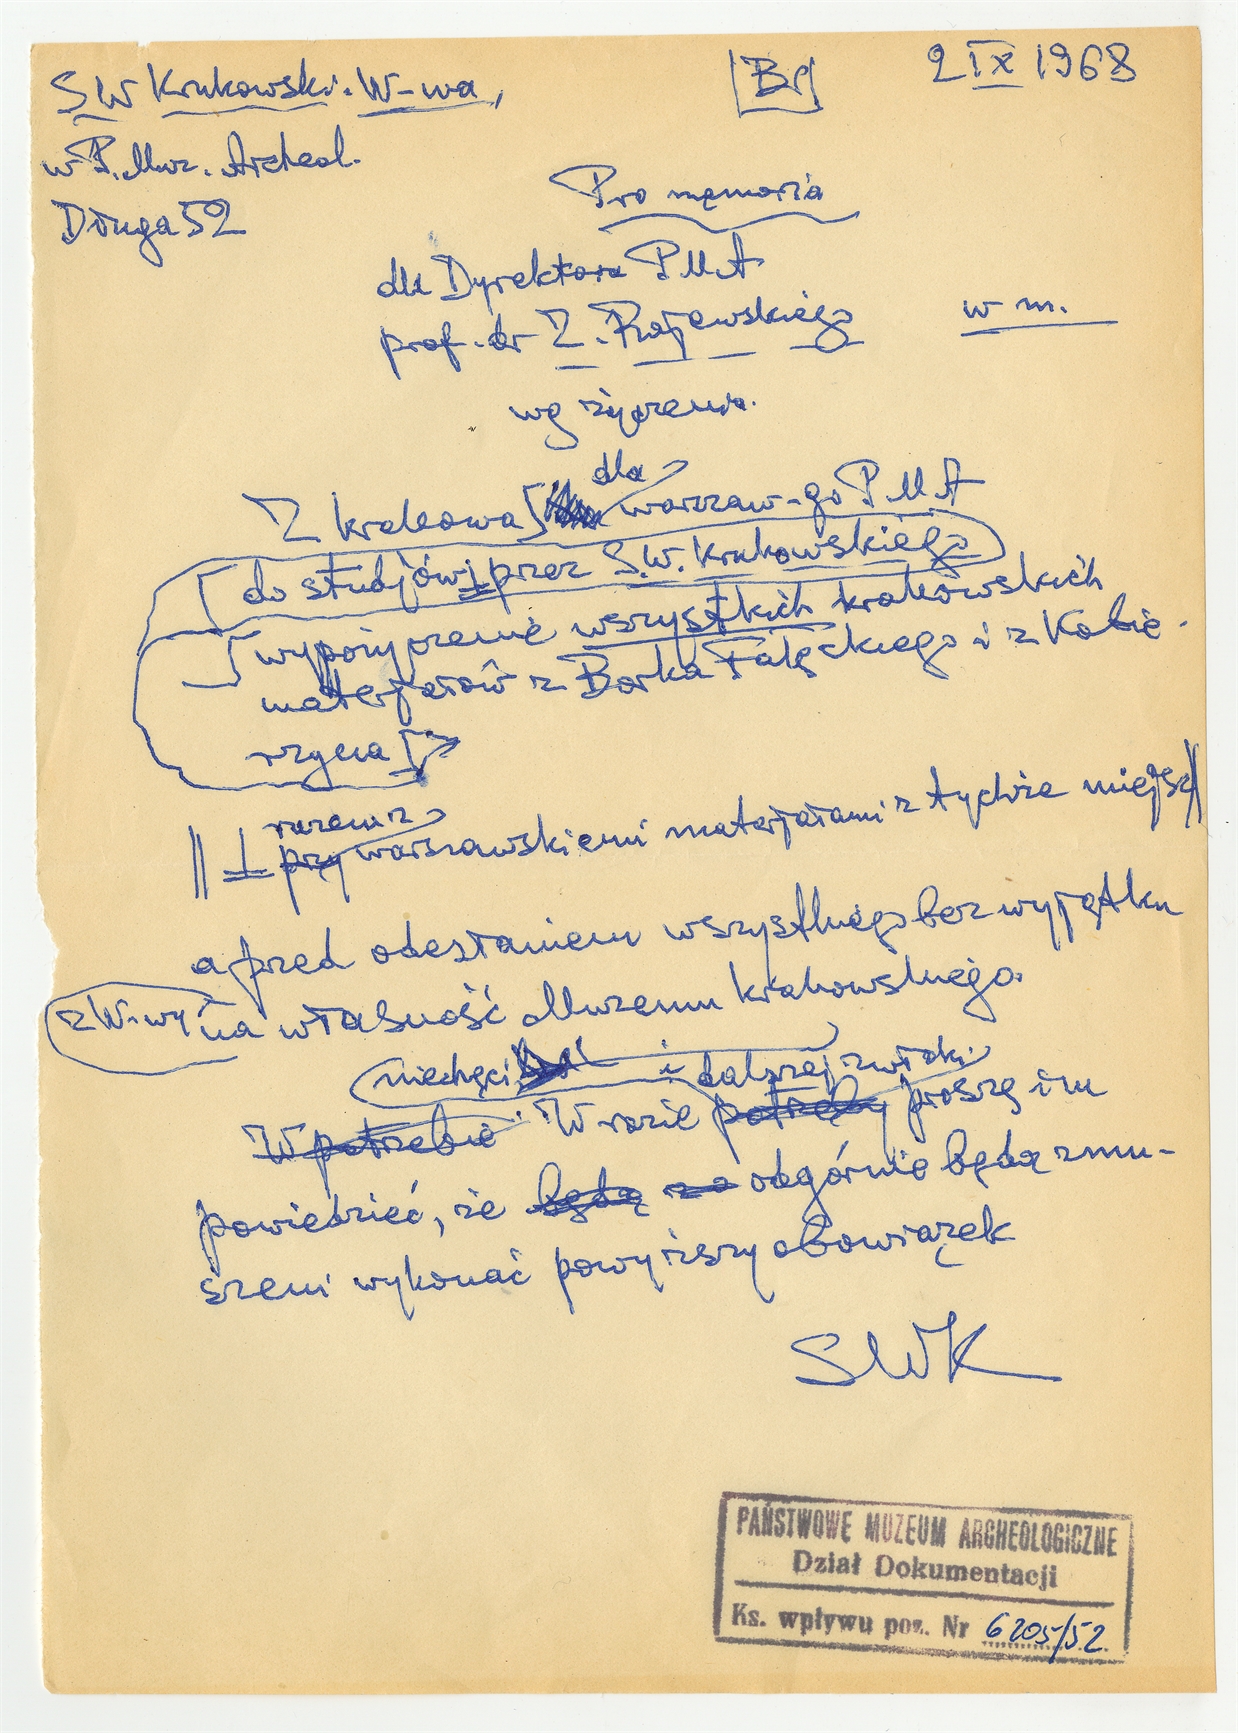 SW Krukowski. W-wa,
w P. Muz. Archeol.
Długa 52
[Br]
2 IX 1968
Pro memoria
dla Dyrektora P M A
prof. dr Z. Rajewskiego
w m.
wg życzenia.
Z Krakowa dla warszaw-go P M A
do studjów przez S.W. Krukowskiego
wypożyczenie wszystkich krakowskich
materjałów z Borka Fałęckiego i z Kobie-
rzyna
|| ⊥ przy razem z warszawskiemi materjałami z tychże miejsc ||
a przed odesłaniem wszystkiego bez wyjątku
z W-wy na własność Muzeum krakowskiego.
niechęci i dalszej zwłoki
W potrzebie W razie potrzeby proszę im
powiedzieć, że będą za odgórnie będą zmu-
szeni wykonać powyższy obowiązek
SWK
PAŃSTWOWE MUZEUM ARCHEOLOGICZNE
Dział Dokumentacji
Ks. wpływu poz. Nr 6205/52